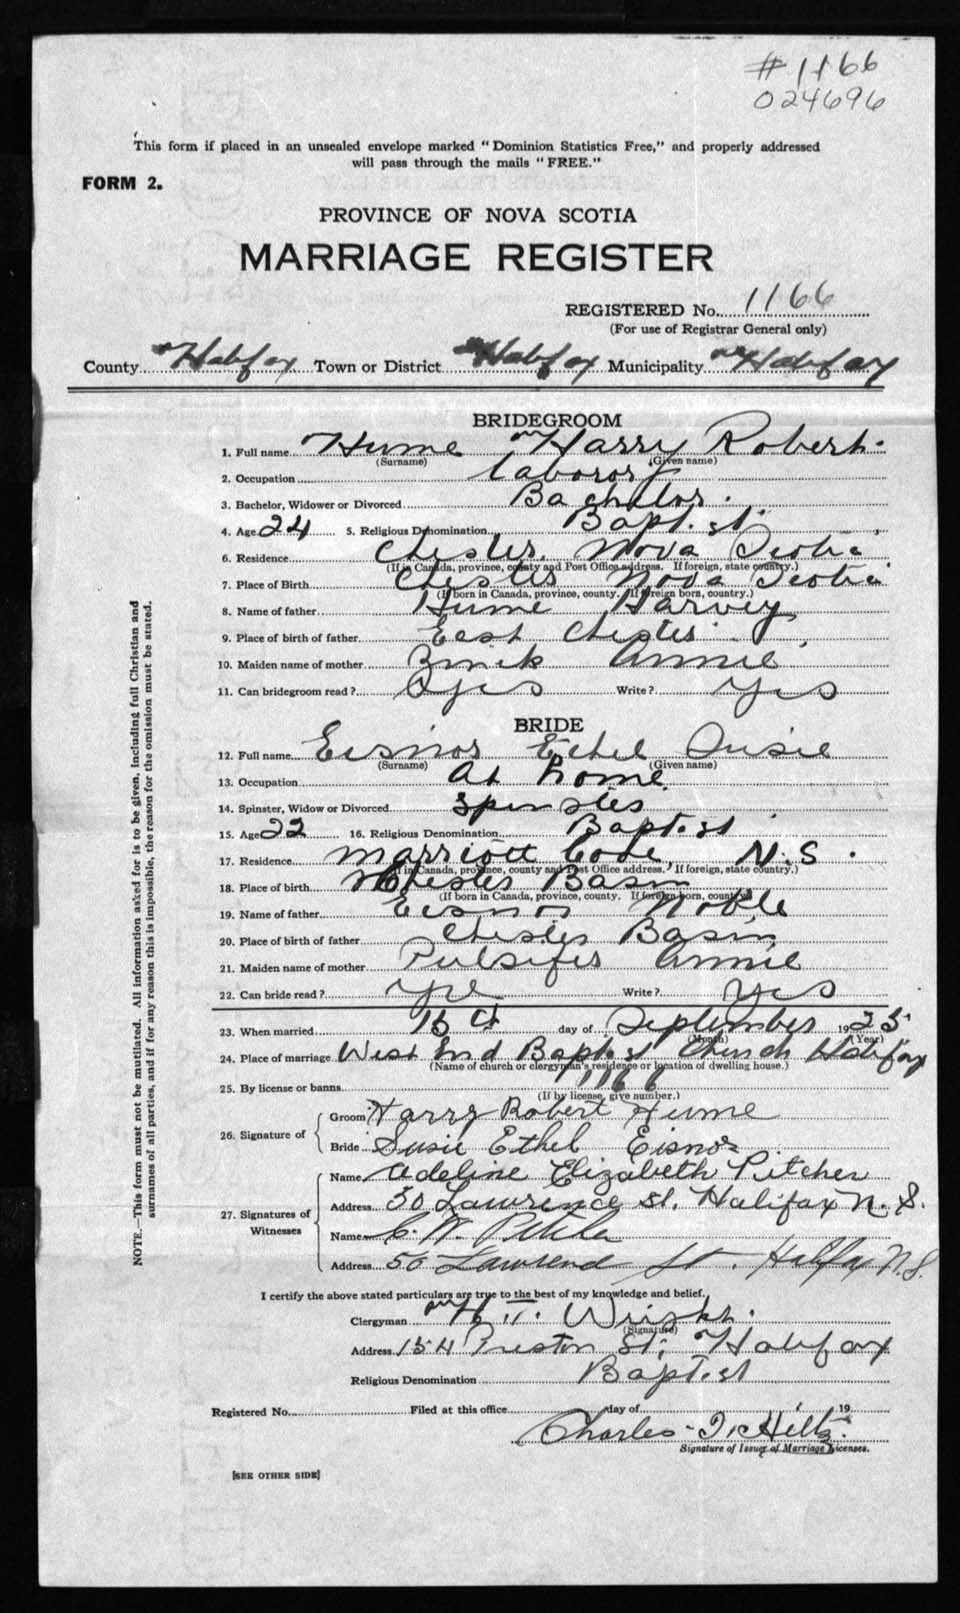 #1166
024696
This form if placed in an unsealed envelope marked "Dominion Statistics Free," and properly addressed
will pass through the mails "FREE."
FORM 2.
PROVINCE OF NOVA SCOTIA
MARRIAGE REGISTER
REGISTERED No. 1166
(For use of Registrar General only)
County Halifax Town or District Halifax Municipality Halifax
BRIDEGROOM
1. Full name Hume Harry Robert
(Surname) (Given name)
2. Occupation Laboror
3. Bachelor, Widower or Divorced Bachelor.
4. Age 24 5. Religious Denomination Baptist
6. Residence Chester. Nova Scotia
(If in Canada, province, county and Post Office address. If foreign, state country.)
7. Place of Birth Chester Nova Scotia
(If born in Canada, province, county. If foreign born, country.)
8. Name of father Hume Harvey
9. Place of birth of father East Chester
10. Maiden name of mother Annie
11. Can bridegroom read? Yes Write? Yes
BRIDE
12. Full name Eisnor Ethel Susie
(Surname) (Given name)
13. Occupation At home
14. Spinster, Widow or Divorced Spinster
15. Age 22 16. Religious Denomination Baptist
17. Residence Marriott Cove, N.S.
(If in Canada, province, county and Post Office address. If foreign, state country.)
18. Place of birth Chester Basin
(If born in Canada, province, county. If foreign born, country.)
19. Name of father Eisnor Noble
20. Place of birth of father Chester Basin
21. Maiden name of mother Pulsifer Annie
22. Can bride read? Write? Yes
23. When married day of September 1925
(Month) (Year)
24. Place of marriage West End Baptist Church Halifax
(Name of church or clergyman's residence or location of dwelling house.)
25. By license or banns 1166
(If by license, give number.)
26. Signature of
Groom Harry Robert Hume
Bride Susie Ethel Eisnor
27. Signatures of Witnesses
Name Adeline Elizabeth Pitcher
Address 50 Lawrence St. Halifax N.S.
Name C. W.
Address 50 Lawrence St. Halifax N.S.
I certify the above stated particulars are true to the best of my knowledge and belief.
Clergyman H. T. Wright.
(Signature)
Address 154 Preston St; Halifax
Religious Denomination Baptist
Registered No. Filed at this office day of 19
Charles T. Hiltz.
Signature of Issuer of Marriage Licenses.
[SEE OTHER SIDE]
NOTE.—This form must not be mutilated. All information asked for is to be given, including full Christian and
surnames of all parties, and if for any reason this is impossible, the reason for the omission must be stated.